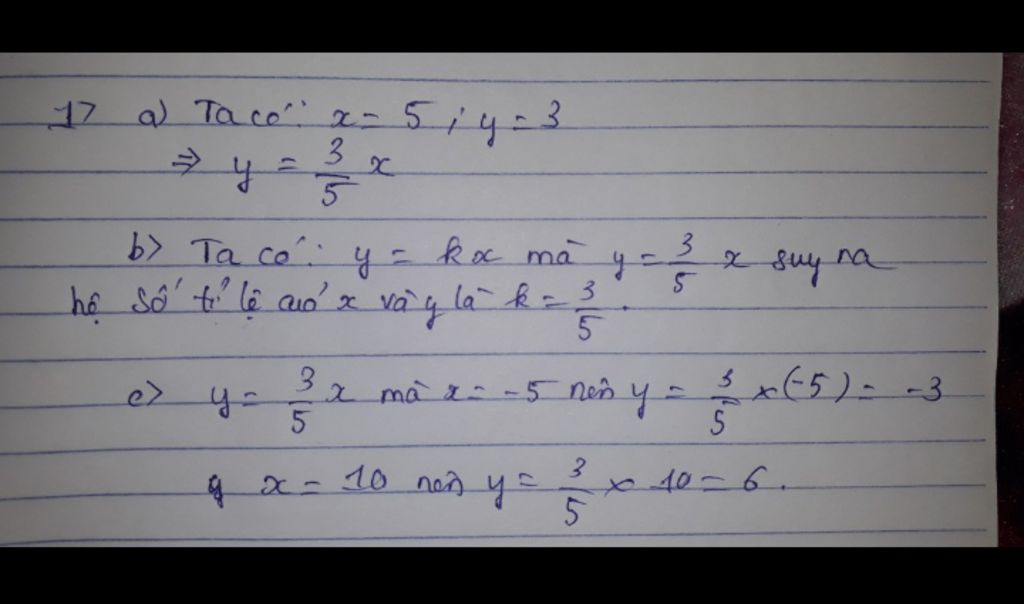 1> a) Ta có: x = 5 ; y = 3
⇒ y = 3/5 x
b> Ta có: y = kx mà y = 3/5 x suy ra
hệ số tỉ lệ của x và y là k = 3/5 .
c> y = 3/5 x mà x = -5 nên y = 3/5 x (-5) = -3
x = 10 nên y = 3/5 x 10 = 6 .